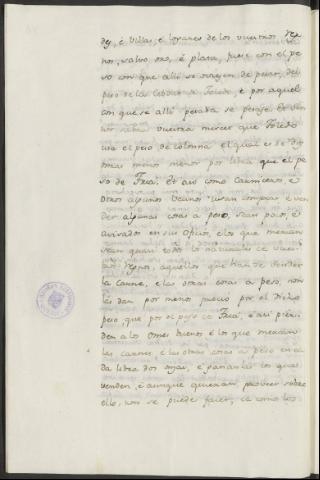 des, e Villas, e logares de los vuestros reg
nos, salvo oro, e plata, fuese con el pe
so con que alli se oviesen de pesar, del
peso de la Cibdat de Toledo, e por aquel
con que se alli pesava se pesase. Et Se
nor sepa vuestra merced que Toledo
usa el peso de colonna el qual es de dos
onzas menos menor por libra que el pe
so de Teja. Et asi como Carniceros, e
otros algunos Vecinos usan comprar e ven
der algunas cosas a peso, sean para, e
avisados en sus oficios, e los que mercan
sean quan todos los al vuestros
regnos, aquellos que han de vender
la carne, e las otras cosas a peso, non
las dan por menos precio por el dicho
peso, que por el peso de Teja, e asi pier
den a los omes buenos e los que mercan
las carnes, e las otras cosas a peso en ca
da libra dos onzas, e gananlas los que
venden, e aunque quieran proveer sobre
ello, non se puede facer, ca como los